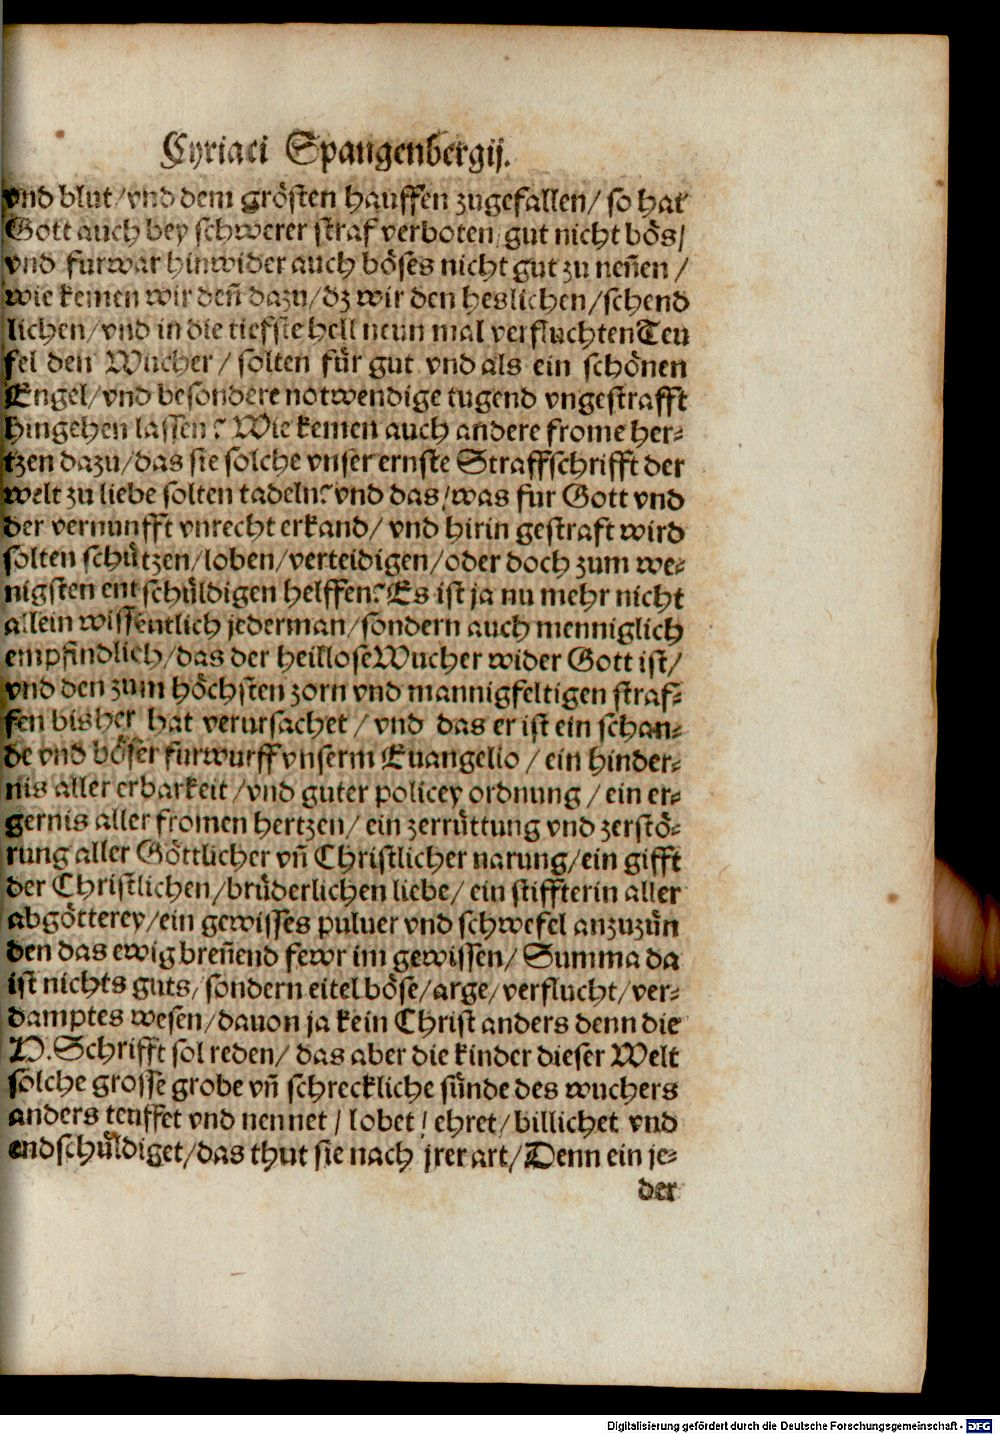 Cyriaci Spangenbergij.
vnd blut/vnd dem grösten hauffen zugefallen/ so hat
Gott auch bey schwerer straf verboten/ gut nicht bös/
vnd furwar hinwider auch böses nicht gut zu neñen /
wie kemen wir deñ dazu/dz wir den heslichen/schend
lichen/vnd in die tieffste hell neun mal verfluchten Teu
fel den Wucher/ solten für gut vnd als ein schönen
Engel/vnd besondere notwendige tugend vngestrafft
hingehen lassen? Wie kemen auch andere frome her-
tzen dazu/das sie solche vnser ernste Straffschrifft der
welt zu liebe solten tadeln? vnd das/was fur Gott vnd
der vernunfft vnrecht erkand/ vnd hirin gestraft wird
solten schützen/loben/verteidigen/oder doch zum we-
nigsten entschüldigen helffen? Es ist ja nu mehr nicht
allein wissentlich jederman/sondern auch menniglich
empfindlich/das der heillose Wucher wider Gott ist/
vnd den zum höchsten zorn vnd mannigfeltigen straf-
fen bisher hat verursachet / vnd das er ist ein schan-
de vnd böser furwurff vnserm Euangelio / ein hinder-
nis aller erbarkeit /vnd guter policey ordnung / ein er-
gernis aller fromen hertzen/ ein zerrüttung vnd zerstö-
rung aller Göttlicher vñ Christlicher narung/ein gifft
der Christlichen/brüderlichen liebe/ ein stiffterin aller
abgötterey/ein gewisses puluer vnd schwefel anzuzün
den das ewig breñend fewr im gewissen/ Summa da
ist nichts guts/sondern eitel böse/arge/verflucht/ver-
damptes wesen/dauon ja kein Christ anders denn die
H. Schrifft sol reden/ das aber die kinder dieser Welt
solche grosse grobe vñ schreckliche sünde des wuchers
anders teuffet vnd nennet / lobet / ehret/ billichet vnd
endschüldiget/das thut sie nach jrer art/Denn ein je-
der
Digitalisierung gefördert durch die Deutsche Forschungsgemeinschaft - DFG